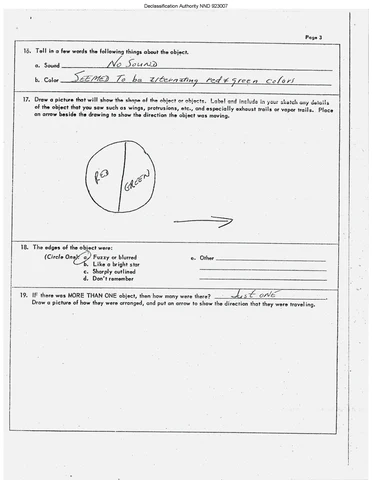 Declassification Authority NND 923007
Page 3
16. Tell in a few words the following things about the object.
a. Sound No SOUND
b. Color SEEMED To be alternating red & green colors
17. Draw a picture that will show the shape of the object or objects. Label and include in your sketch any details
of the object that you saw such as wings, protrusions, etc., and especially exhaust trails or vapor trails. Place
an arrow beside the drawing to show the direction the object was moving.
RED
GREEN
18. The edges of the object were:
(Circle One) a. Fuzzy or blurred e. Other
b. Like a bright star
c. Sharply outlined
d. Don't remember
19. IF there was MORE THAN ONE object, then how many were there? Just ONE
Draw a picture of how they were arranged, and put an arrow to show the direction that they were traveling.